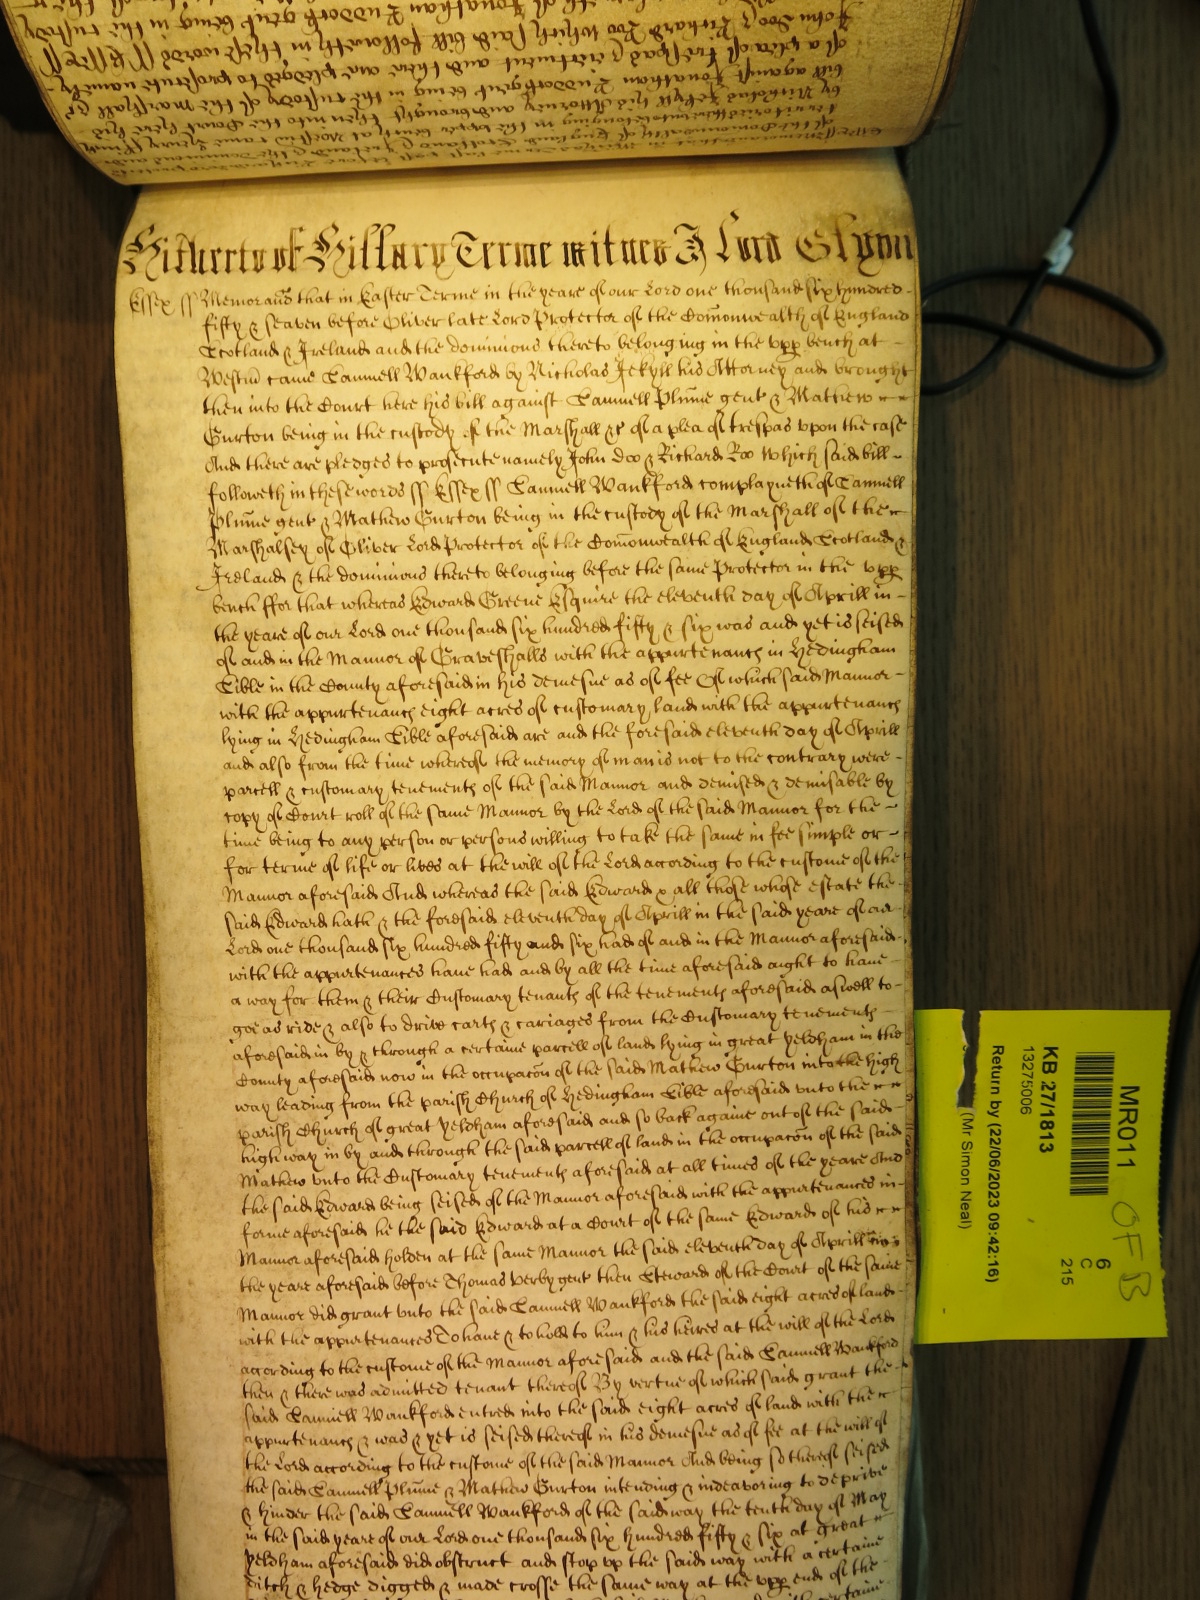 Hitherto of Hillary Terme witnes J Lord Glynn
Essex ss Memorand that in Easter Terme in the yeare of our Lord one thousand six hundred
fifty & seaven before Oliver late Lord Protector of the Comonwealth of England
Scotland & Ireland and the dominions thereto belonging in the upp bench at
Westm came Samuell Wankford by Nicholas Jekyll his Attorney and brought
then into the Court here his bill against Samuell Plume gent & Mathew
Gurton being in the custody of the Marshall &c of a plea of trespas upon the case
And there are pledges to prosecute namely John Doo & Richard Roo Which said bill
followeth in these words ss Essex ss Samuell Wankford complayneth of Samuell
Plume gent & Mathew Gurton being in the custody of the Marshall of the
Marshalsey of Oliver Lord Protector of the Comonwealth of England Scotland &
Ireland & the dominions thereto belonging before the same Protector in the upp
bench ffor that whereas Edward Greene Esquire the eleventh day of Aprill in
the yeare of our Lord one thousand six hundred fifty & six was and yet is seised
of and in the Mannor of Graveshalls with the appurtenancs in Hedingham
Sible in the County aforesaid in his demesne as of fee Of which said Mannor
with the appurtenancs eight acres of customary land with the appurtenancs
lying in Hedingham Sible aforesaid are and the foresaid eleventh day of Aprill
and also from the time whereof the memory of man is not to the contrary were
parcell & customary tenements of the said Mannor and demised & demisable by
copy of Court roll of the same Mannor by the Lord of the said Mannor for the
time being to any person or persons willing to take the same in fee simple or
for terme of life or lives at the will of the Lord according to the custome of the
Mannor aforesaid And whereas the said Edward & all those whose estate the
said Edward hath & the foresaid eleventh day of Aprill in the said yeare of our
Lord one thousand six hundred fifty and six had of and in the Mannor aforesaid
with the appurtenances have had and by all the time aforesaid ought to have
a way for them & their Customary tenants of the tenements aforesaid aswell to
goe as ride & also to drive carts & cariages from the Customary tenements
aforesaid in by & through a certaine parcell of land lying in great Yeldham in the
County aforesaid now in the occupacon of the said Mathew Gurton into the high
way leading from the parish Church of Hedingham Sible aforesaid unto the
parish Church of great Yeldham aforesaid and so back againe out of the said
high way in by and through the said parcell of land in the occupacon of the said
Mathew unto the Customary tenements aforesaid at all times of the yeare And
the said Edward being seised of the Mannor aforesaid with the appurtenances in
forme aforesaid he the said Edward at a Court of the same Edward of his
Mannor aforesaid holden at the same Mannor the said eleventh day of Aprill in
the yeare aforesaid before Thomas Verby gent then Steward of the Court of the same
Mannor did grant unto the said Samuell Wankford the said eight acres of land
with the appurtenances To have & to hold to him & his heires at the will of the Lord
according to the custome of the Mannor aforesaid and the said Samuell Wankford
then & there was admitted tenant thereof By vertue of which said grant the
said Samuell Wankford entred into the said eight acres of land with the
appurtenancs & was & yet is seised thereof in his demesne as of fee at the will of
the Lord according to the custome of the said Mannor And being so thereof seised
the said Samuell Plume & Mathew Gurton intending & indeavoring to deprive
& hinder the said Samuell Wankford of the said way the tenth day of May
in the said yeare of our Lord one thousand six hundred fifty & six at great
Yeldham aforesaid did obstruct and stop up the said way with a certaine
ditch & hedge digged & made crosse the same way at the upp end of the
MR011
6
C
215
KB 27/1813
13275006
Return by (22/06/2023 09:42:16)
(Mr Simon Neal)
OF B